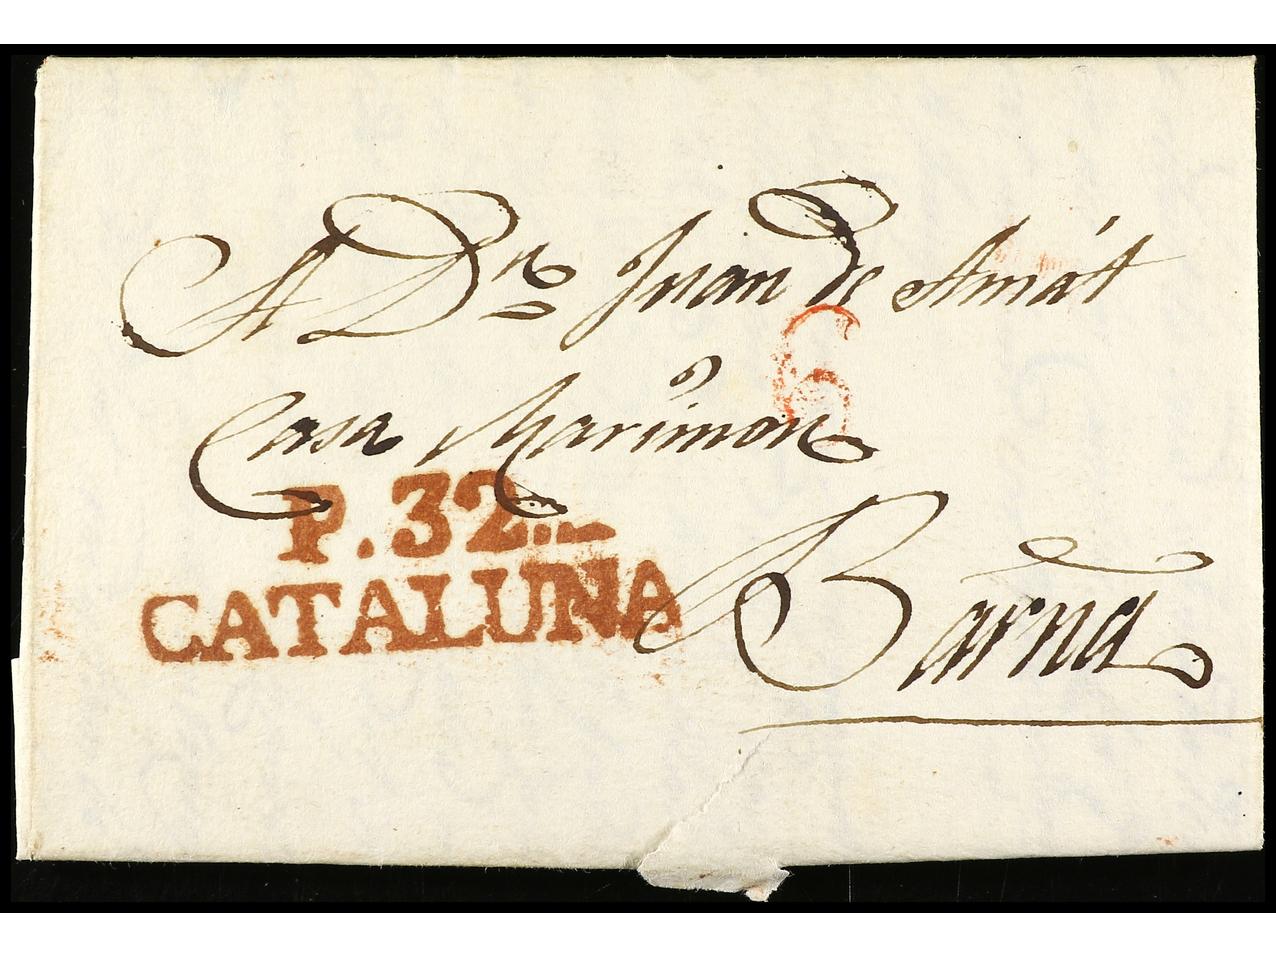 A Dn Juan de Amát
6
Casa Marimon
P.32..
CATALUÑA
Barna